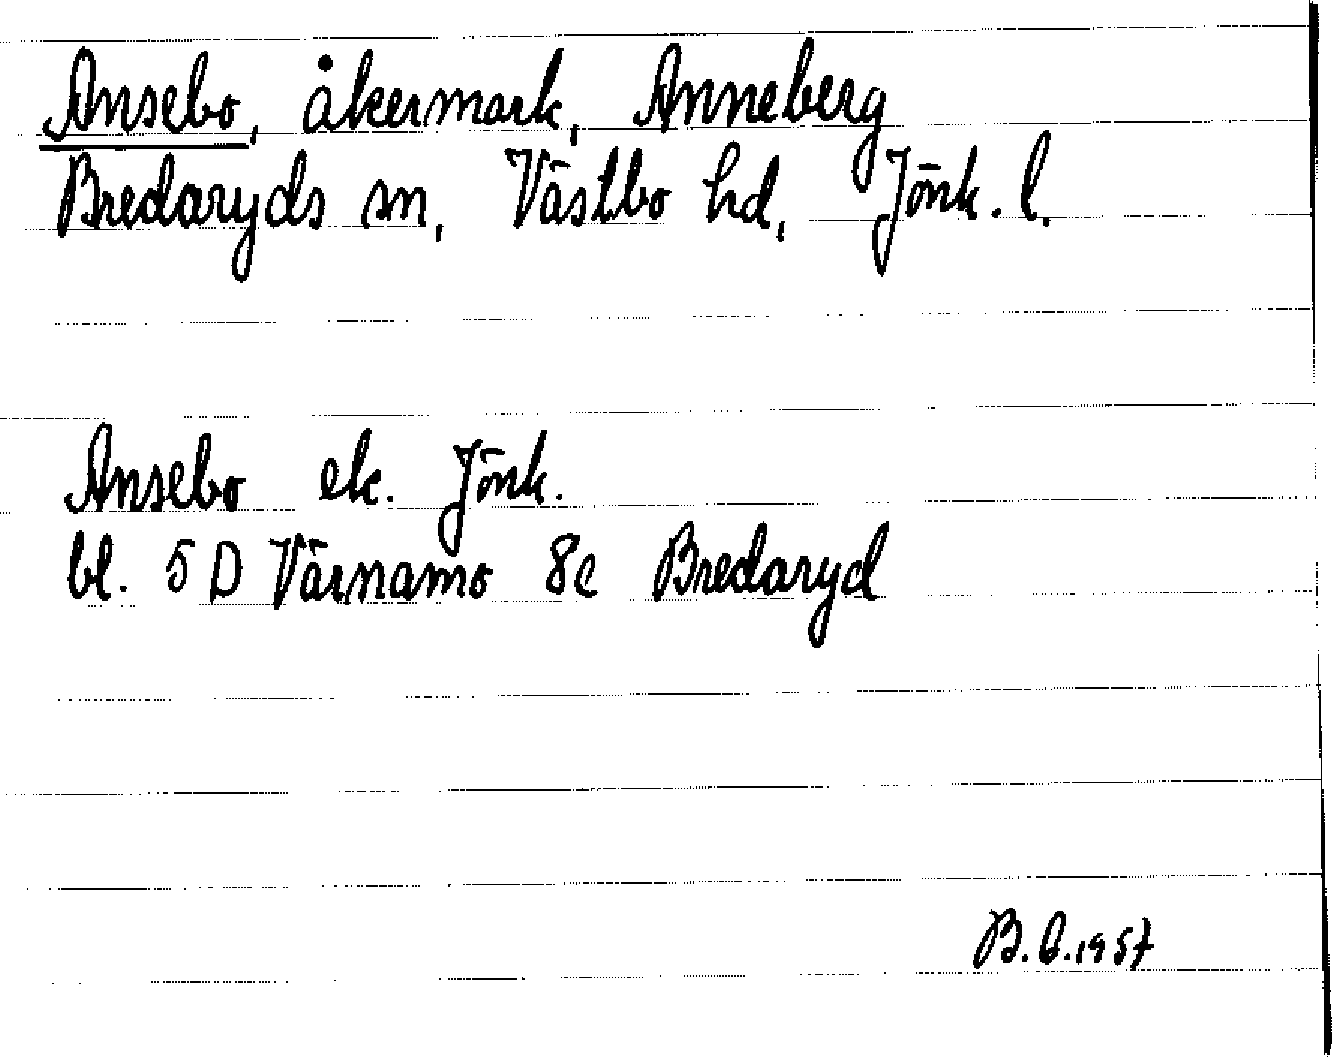 Ansebo, åkermark, Anneberg
Bredaryds sn, Västbo hd, Jönk. l.
Ansebo ek. Jönk.
bl. 5 D Värnamo 8c Bredaryd
B.O.1957